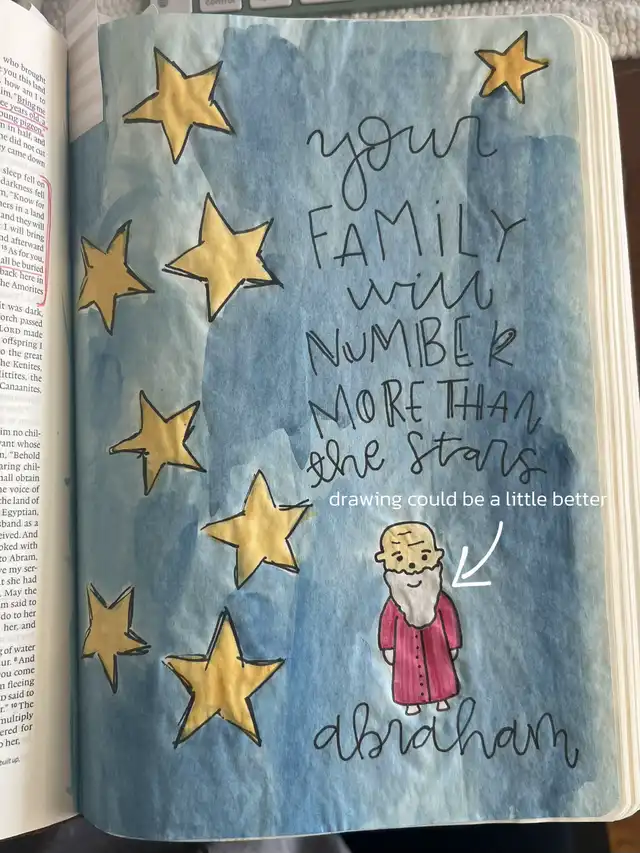 control
who brought
you this land
how am I to
"Bring me
years old, a
young pigeon."
in half, and
he did not cut
came down
sleep fell on
darkness fell
"Know for
in a land
and they will
I will bring
and afterward
15 As for you,
shall be buried
back here in
the Amorites
it was dark,
torch passed
LORD made
offspring I
to the great
the Kenites,
Hittites, the
Canaanites,
him no chil-
whose
"Behold
chil-
shall obtain
the voice of
the land of
Egyptian,
husband as a
And
looked with
to Abram,
my ser-
that she had
May the
said to
do to her
her, and
of water
8 And
you come
fleeing
said to
10 The
multiply
for
to her,
built up.
your
FAMiLY
will
NuMBER
MORE THAN
the stars
drawing could be a little better
abraham